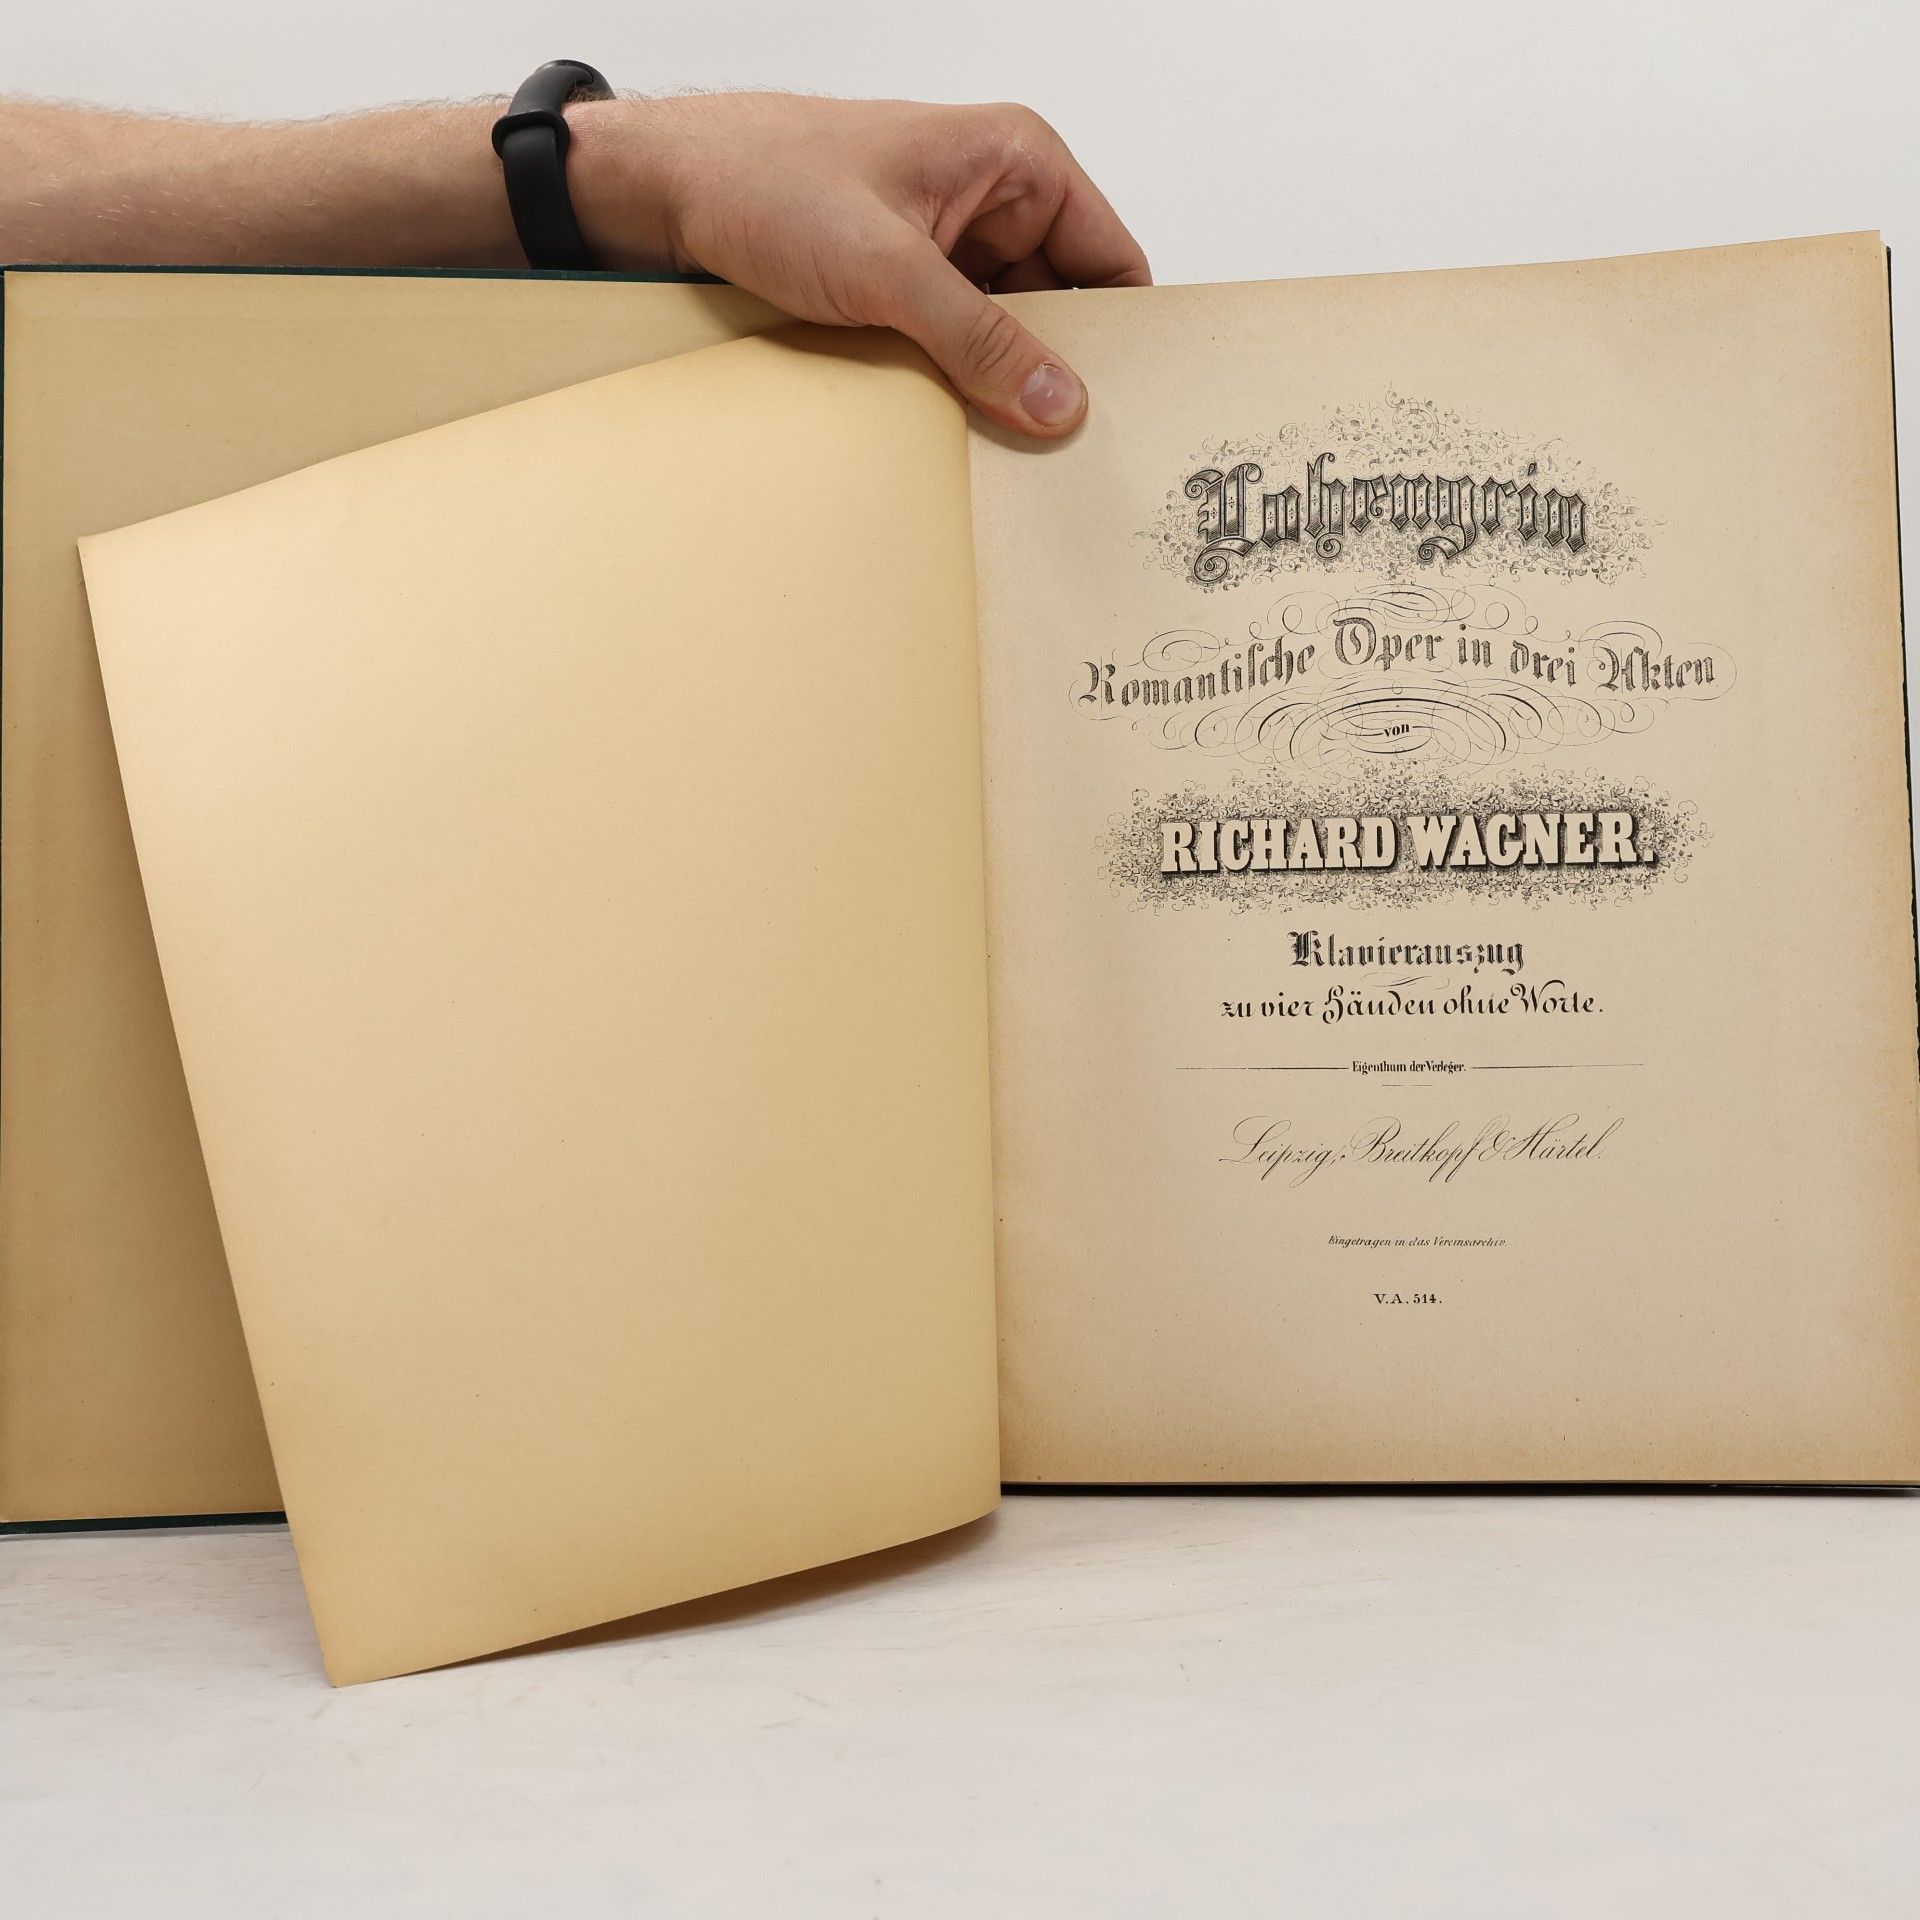 Lohengrin
Romantische Oper in drei Akten
von
RICHARD WAGNER.
Klavierauszug
zu vier Händen ohne Worte.
Eigenthum der Verleger.
Leipzig, Breitkopf & Härtel.
Eingetragen in das Vereinsarchiv.
V.A. 514.